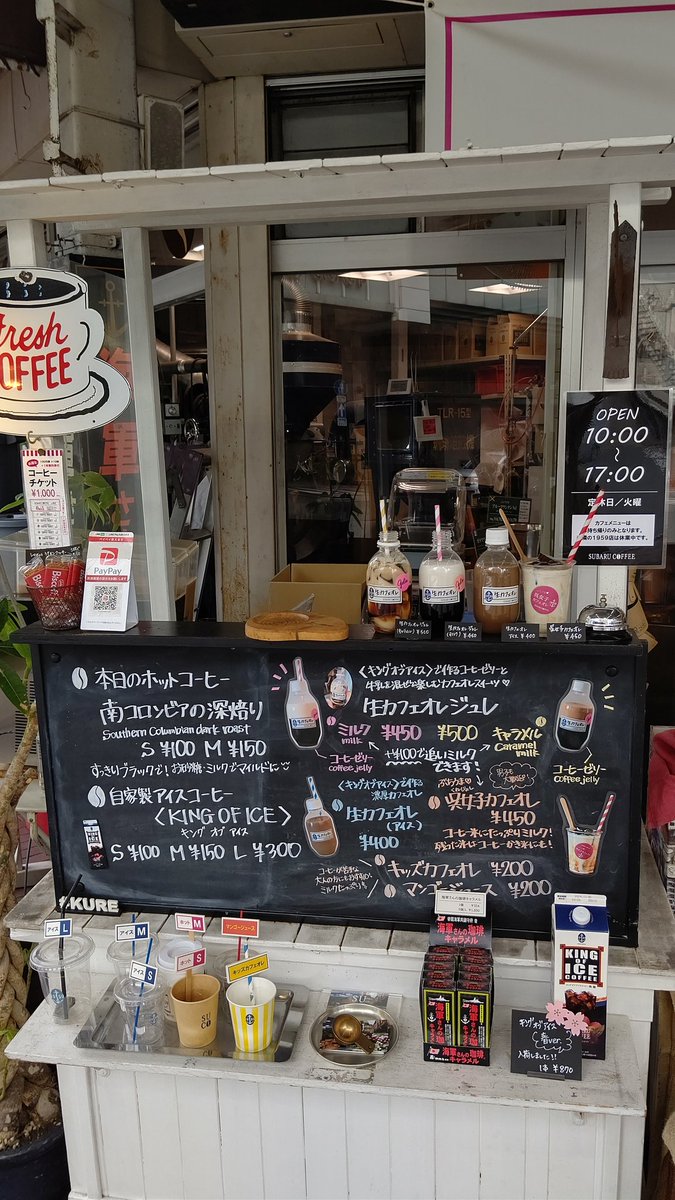 Fresh
COFFEE
コーヒー
チケット
¥1,000
PayPay
OPEN
10:00
~
17:00
定休日／火曜
カフェメニューは
SUBARU COFFEE
TLR-15
生カフェオレ
生カフェオレ
生カフェオレ
本日のホットコーヒー
南コロンビアの深焙り
Southern Columbian dark roast
S ¥100 M ¥150
すっきりブラックで！お砂糖・ミルクでマイルドに
自家製アイスコーヒー
〈KING OF ICE〉
キング オブ アイス
S ¥100 M ¥150 L ¥300
〈キングオブアイス〉で作るコーヒーゼリーと
生カフェオレジュレ
ミルク ¥450 ¥500 キャラメル
milk Caramel milk
コーヒーゼリー
coffee jelly
+¥100で追いミルク
できます！
コーヒーゼリー
coffee jelly
〈キングオブアイス〉で作る
濃厚カフェオレ
生カフェオレ
(アイス)
¥400
呉女子カフェオレ
¥450
コーヒー氷にたっぷりミルク！
コーヒーが苦手な
キッズカフェオレ ¥200
マンゴージュース ¥200
KURE
アイス L
アイス M
アイス S
ホット M
ホット S
マンゴージュース
キッズカフェオレ
SUCO
海軍さんの珈琲
キャラメル
海軍さんの珈琲
キャラメル
KING
OF
ICE
COFFEE
キングオブアイス
春ver.
入荷しました!!
1本 ¥890